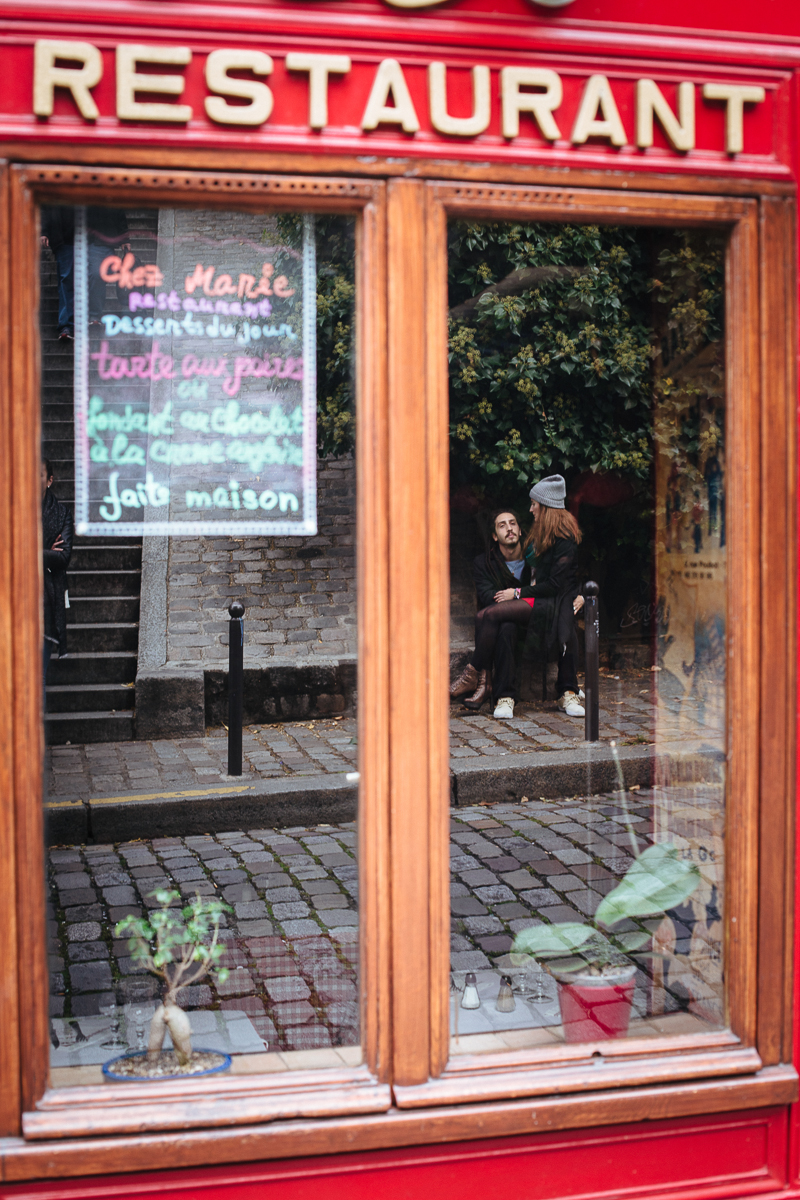 RESTAURANT
Chez Marie
restaurant
Desserts du jour
tarte aux poires
ou
fondant au chocolat
à la creme anglaise
faits maison